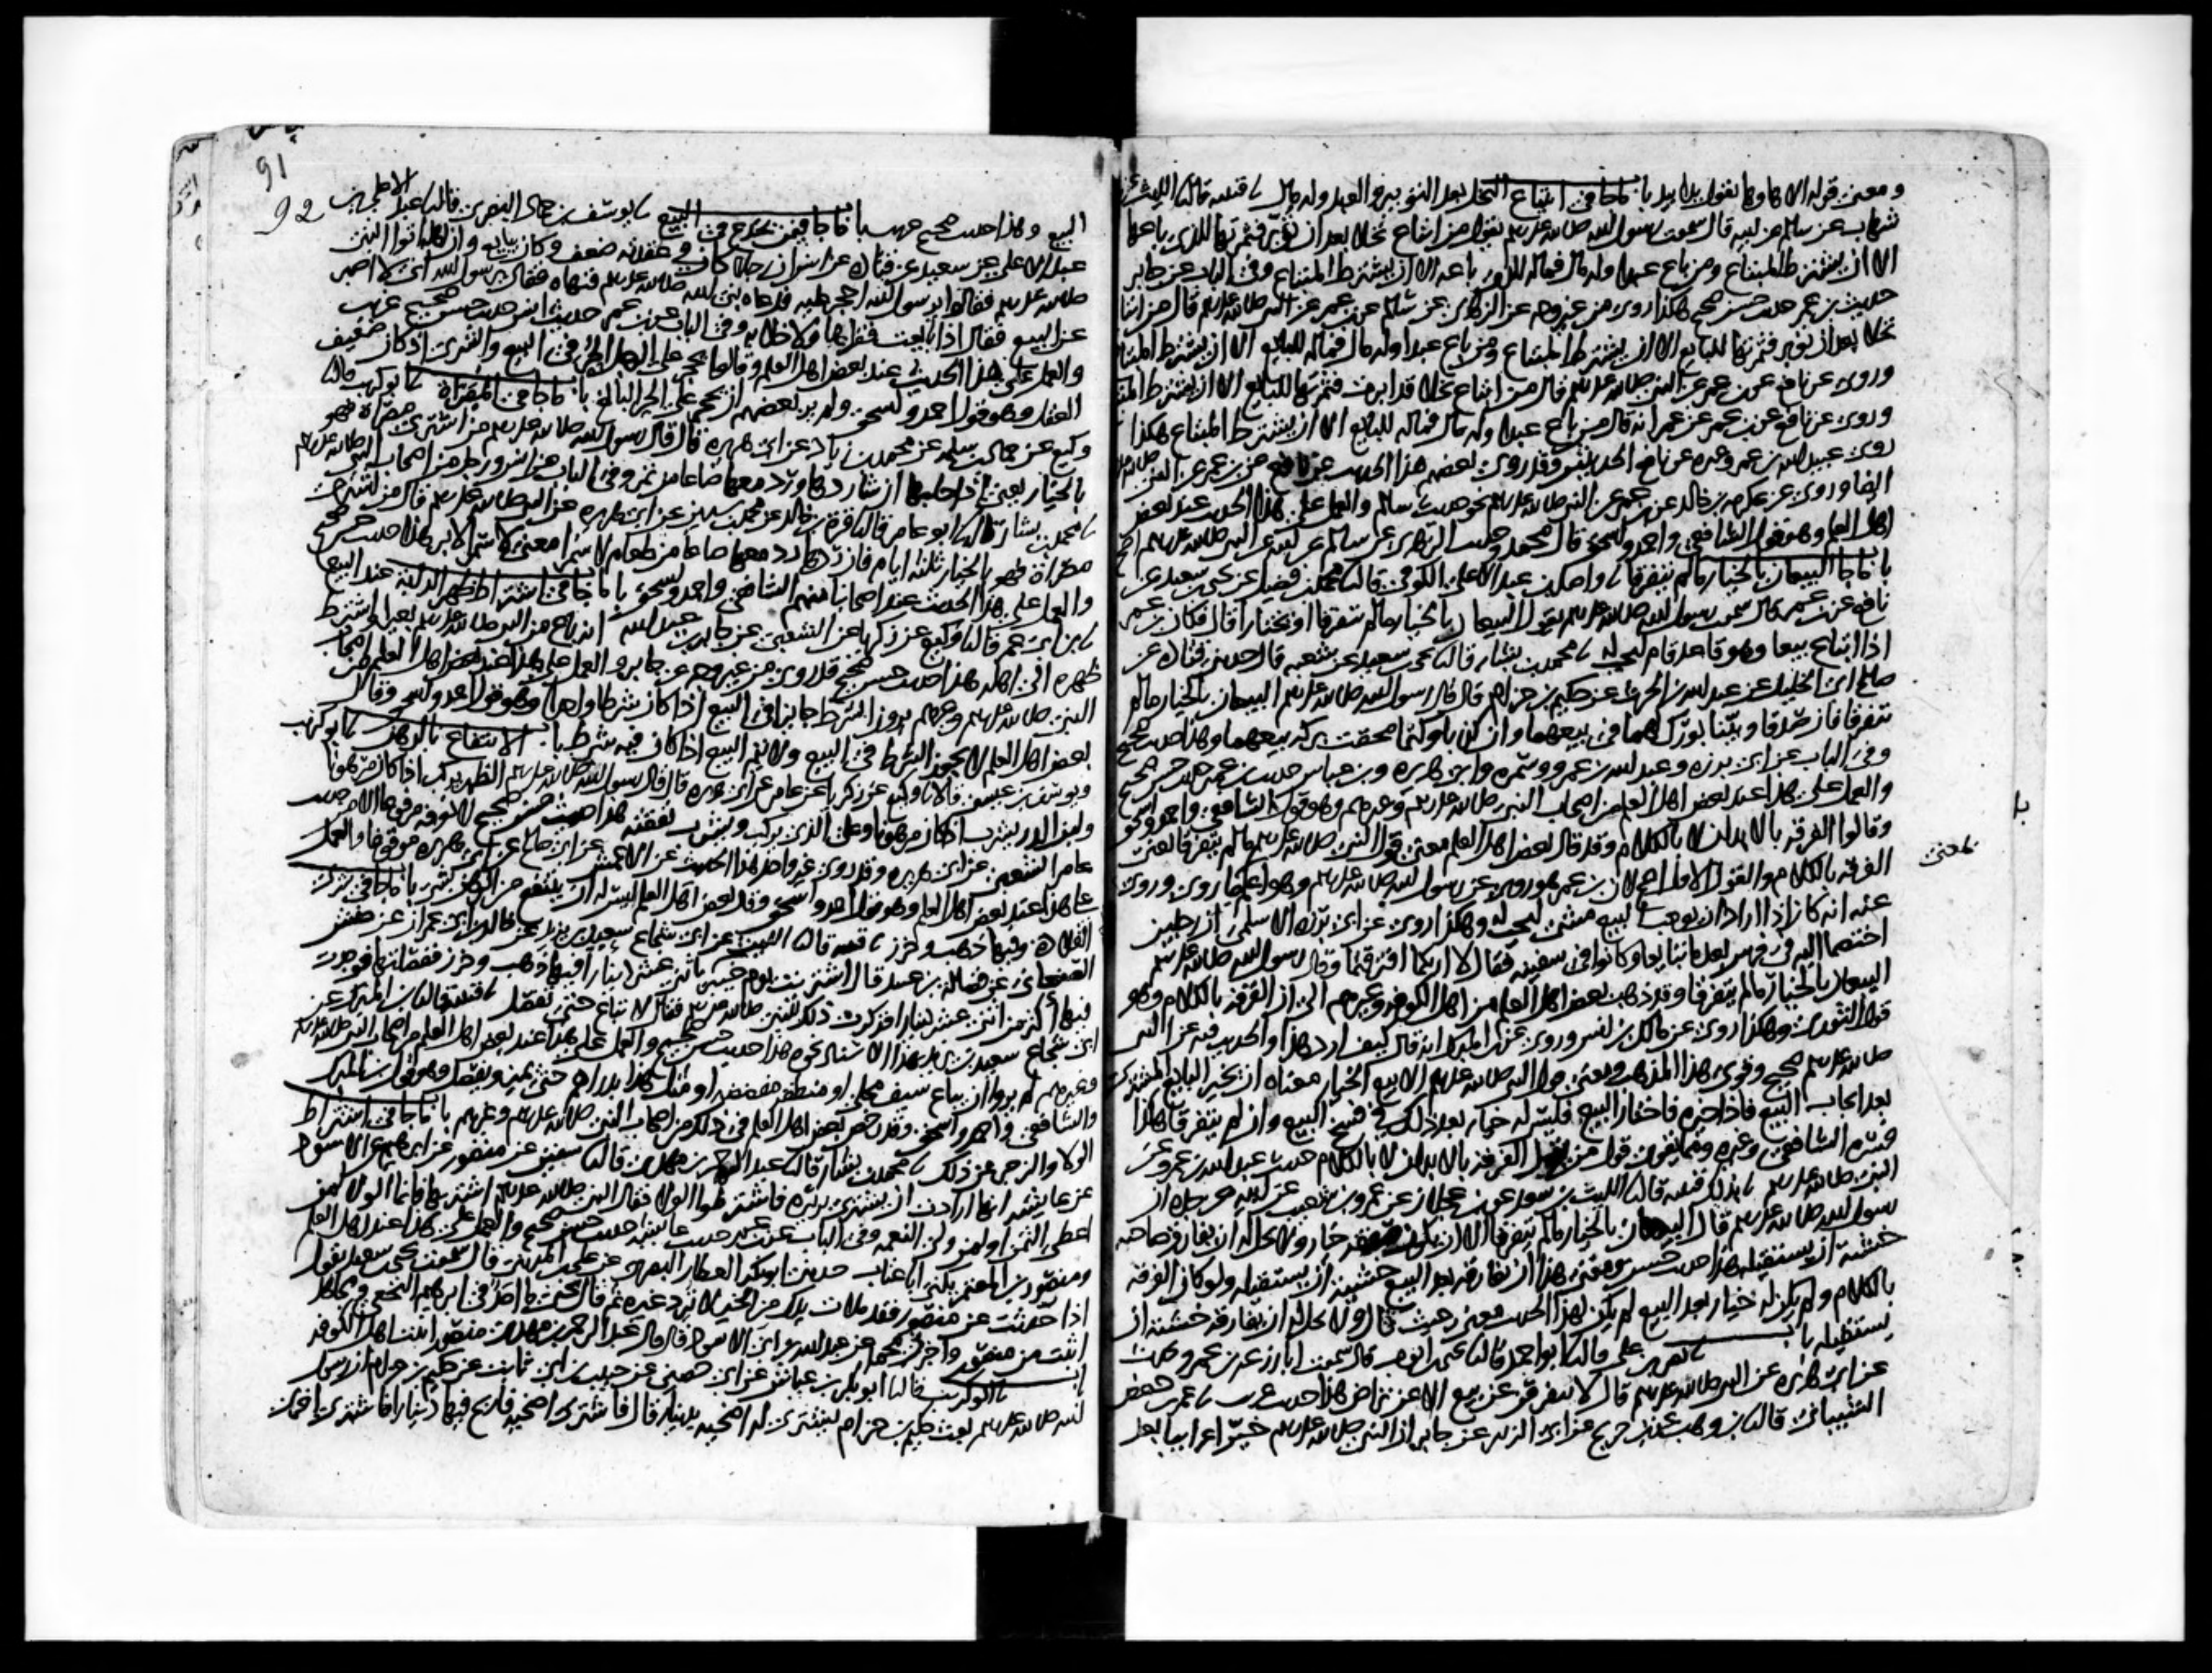 ومعنى قوله الا ها وها يقول يدا بيد باب ما جا في ابتياع النخل بعد التوبير والعبد وله مال قتيبة قال الليث
شهاب عن سالم عن ابيه قال سمعت رسول الله صلى الله عليه وسلم يقول من ابتاع نخلا بعد ان توبر فثمرتها للذي باعها
الا ان يشترط المبتاع ومن باع عبدا وله مال فماله للذي باعه الا ان يشترط المبتاع وفي الباب عن جابر
حديث بن عمر حديث حسن صحيح هكذا روي من غير وجه عن الزهري عن سالم عن بن عمر عن النبي صلى الله عليه وسلم قال من ابتاع
نخلا بعد ان توبر فثمرتها للبايع الا ان يشترط المبتاع ومن باع عبدا وله مال فماله للبايع الا ان يشترط المبتاع
وروي عن نافع عن بن عمر عن النبي صلى الله عليه وسلم قال من ابتاع نخلا قد ابرت فثمرتها للبايع الا ان يشترط
وروي عن نافع عن بن عمر عن عمر انه قال من باع عبدا وله مال فماله للبايع الا ان يشترط المبتاع هكذا
روى عبيد الله بن عمر وغيره عن نافع الحديثين وقد روى بعضهم هذا الحديث عن نافع عن بن عمر عن النبي
ايضا وروى عن عكرمه بن خالد عن بن عمر عن النبي صلى الله عليه وسلم نحو حديث سالم والعمل على هذا الحديث عند بعض
اهل العلم وهو قول الشافعي واحمد واسحق قال محمد وحديث الزهري عن سالم عن ابيه عن النبي صلى الله عليه وسلم اصح
باب ما جا البيعان بالخيار ما لم يتفرقا واصل بن عبد الاعلى الكوفي قال محمد بن فضيل عن يحيى بن سعيد عن
نافع عن بن عمر قال سمعت رسول الله صلى الله عليه وسلم يقول البيعان بالخيار ما لم يتفرقا او يختارا قال فكان بن عمر
اذا ابتاع بيعا وهو قاعد قام ليجب له محمد بن بشار قال يحيى بن سعيد عن شعبه قال حدثني قتاده عن
صالح ابي الخليل عن عبد الله بن الحرث عن حكيم بن حزام قال قال رسول الله صلى الله عليه وسلم البيعان بالخيار ما لم
يتفرقا فان صدقا وبينا بورك لهما في بيعهما وان كذبا وكتما محقت بركة بيعهما وهذا حديث صحيح
وفي الباب عن ابي برزه وعبد الله بن عمرو وسمره وابي هريره وبن عباس حديث بن عمر حديث حسن صحيح
والعمل على هذا عند بعض اهل العلم من اصحاب النبي صلى الله عليه وسلم وغيرهم وهو قول الشافعي واحمد واسحق
وقالوا الفرقه بالابدان لا بالكلام وقد قال بعض اهل العلم معنى قول النبي صلى الله عليه وسلم ما لم يتفرقا يعني
الفرقه بالكلام والقول الاول اصح لان بن عمر هو روى عن رسول الله صلى الله عليه وسلم وهو اعلم بما روى وروي
عنه انه كان اذا اراد ان يوجب البيع مشى ليجب له وهكذا روي عن ابي برزه الاسلمي ان رجلين
اختصما اليه في فرس بعد ما تبايعا وكانوا في سفينه فقال لا اراكما افترقتما وقال رسول الله صلى الله عليه وسلم
البيعان بالخيار ما لم يتفرقا وقد ذهب بعض اهل العلم من اهل الكوفه وغيرهم الى ان الفرقه بالكلام وهو
قول الثوري وهكذا روي عن مالك بن انس وروي عن بن المبارك انه قال كيف ارد هذا والحديث فيه عن النبي
صلى الله عليه وسلم صحيح وقوى هذا المذهب ومعنى قول النبي صلى الله عليه وسلم الا بيع الخيار معناه ان يخير البايع المشتري
بعد ايجاب البيع فاذا خيره فاختار البيع فليس له خيار بعد ذلك في فسخ البيع وان لم يتفرقا هكذا
فسره الشافعي وغيره ومما يقوي قول من يقول الفرقه بالابدان لا بالكلام حديث عبد الله بن عمرو عن
النبي صلى الله عليه وسلم بذلك قتيبه قال الليث بن سعد عن بن عجلان عن عمرو بن شعيب عن ابيه عن جده ان
رسول الله صلى الله عليه وسلم قال البيعان بالخيار ما لم يتفرقا الا ان تكون صفقه خيار ولا يحل له ان يفارق صاحبه
خشية ان يستقيله هذا حديث حسن ومعنى هذا ان يفارقه بعد البيع خشية ان يستقيله ولو كان الفرقه
بالكلام ولم يكن له خيار بعد البيع لم يكن لهذا الحديث معنى حيث قال ولا يحل له ان يفارقه خشية ان
يستقيله باب نصر بن علي قال ابو احمد قال يحيى بن ايوب قال سمعت ابا زرعه بن عمرو يحدث
عن ابي هريره عن النبي صلى الله عليه وسلم قال لا يتفرق عن بيع الا عن تراض هذا حديث غريب عمر بن حفص
الشيباني قال بن وهب عن بن جريج عن ابي الزبير عن جابر ان النبي صلى الله عليه وسلم خير اعرابيا بعد
يعني
91
92
البيع وهذا حديث صحيح غريب باب ما جا فيمن يخدع في البيع يوسف بن حماد البصري قال عبد الاعلى بن
عبد الاعلى عن سعيد عن قتاده عن انس ان رجلا كان في عقدته ضعف وكان يبايع وان اهله اتوا النبي
صلى الله عليه وسلم فقالوا يرسول الله احجر عليه فدعاه نبي الله صلى الله عليه وسلم فنهاه فقال يرسول الله اني لا اصبر
عن البيع فقال اذا بايعت فقل ها ولا خلابه وفي الباب عن بن عمر حديث انس حديث حسن صحيح غريب
والعمل على هذا الحديث عند بعض اهل العلم وقالوا يحجر على الرجل الحر في البيع والشرى اذا كان ضعيف
العقل وهو قول احمد واسحق ولم ير بعضهم ان يحجر على الحر البالغ باب ما جا في المصراة ابو كريب قال
وكيع عن حماد بن سلمه عن محمد بن زياد عن ابي هريره قال قال رسول الله صلى الله عليه وسلم من اشترى مصراة فهو
بالخيار يعني اذا حلبها ان شا ردها ورد معها صاعا من تمر وفي الباب عن انس ورجل من اصحاب النبي صلى الله عليه وسلم
محمد بن بشار قال ابو عامر قال قرة بن خالد عن محمد بن سيرين عن ابي هريره عن النبي صلى الله عليه وسلم قال من اشترى
مصراة فهو بالخيار ثلثة ايام فان ردها رد معها صاعا من طعام لا سمرا معنى لا سمرا لا بر هذا حديث حسن صحيح
والعمل على هذا الحديث عند اصحابنا منهم الشافعي واحمد واسحق باب ما جا في اشتراط ظهر الدابه عند البيع
بن ابي عمر قال وكيع عن زكريا عن الشعبي عن جابر بن عبد الله انه باع من النبي صلى الله عليه وسلم بعيرا واشترط
ظهره الى اهله هذا حديث حسن صحيح قد روي من غير وجه عن جابر والعمل على هذا عند بعض اهل العلم من اصحاب
النبي صلى الله عليه وسلم وغيرهم يرون الشرط جايزا في البيع اذا كان شرطا واحدا وهو قول احمد واسحق وقال
بعض اهل العلم لا يجوز الشرط في البيع ولا يتم البيع اذا كان فيه شرط باب الانتفاع بالرهن ابو كريب
ويوسف بن عيسى قالا وكيع عن زكريا عن عامر عن ابي هريره قال قال رسول الله صلى الله عليه وسلم الظهر يركب اذا كان مرهونا
ولبن الدر يشرب اذا كان مرهونا وعلى الذي يركب ويشرب نفقته هذا حديث حسن صحيح لا نعرفه مرفوعا الا من حديث
عامر الشعبي عن ابي هريره وقد روى غير واحد هذا الحديث عن الاعمش عن ابي صالح عن ابي هريره موقوفا والعمل
على هذا عند بعض اهل العلم وهو قول احمد واسحق وقال بعض اهل العلم ليس له ان ينتفع من الرهن بشي باب ما جا في شرى
القلاده وفيها ذهب وخرز قتيبه قال الليث عن ابي شجاع سعيد بن يزيد عن خالد بن ابي عمران عن حنش
الصنعاني عن فضاله بن عبيد قال اشتريت يوم خيبر قلادة باثني عشر دينارا فيها ذهب وخرز ففصلتها فوجدت
فيها اكثر من اثني عشر دينارا فذكرت ذلك للنبي صلى الله عليه وسلم فقال لا تباع حتى تفصل قتيبه قال بن المبارك عن
ابي شجاع سعيد بن يزيد بهذا الاسناد نحوه هذا حديث حسن صحيح والعمل على هذا عند بعض اهل العلم من اصحاب النبي صلى الله عليه وسلم
وغيرهم لم يروا ان يباع سيف محلى او منطقه مفضضه او مثل هذا بدراهم حتى يميز ويفصل وهو قول بن المبارك
والشافعي واحمد واسحق وقد رخص بعض اهل العلم في ذلك من اصحاب النبي صلى الله عليه وسلم وغيرهم باب ما جا في اشتراط
الولا والزجر عن ذلك محمد بن بشار قال عبد الرحمن بن مهدي قال سفين عن منصور عن ابرهيم عن الاسود
عن عايشه انها ارادت ان تشتري بريره فاشترطوا الولا فقال النبي صلى الله عليه وسلم اشتريها فانما الولا لمن
اعطى الثمن او لمن ولي النعمه وفي الباب عن بن عمر حديث عايشه حديث حسن صحيح والعمل على هذا عند اهل العلم
ومنصور بن المعتمر يكنى ابا عتاب حدثني ابو بكر العطار البصري عن علي بن المديني قال سمعت يحيى بن سعيد يقول
اذا حدثت عن منصور فقد ملات يدك من الخير لا ترد غيره ثم قال يحيى ما اجد في ابرهيم النخعي ومجاهد
اثبت من منصور واخبرني محمد عن عبد الله بن ابي الاسود قال قال عبد الرحمن بن مهدي منصور اثبت اهل الكوفه
باب ابو كريب قال ابو بكر بن عياش عن ابي حصين عن حبيب بن ابي ثابت عن حكيم بن حزام ان رسول
الله صلى الله عليه وسلم بعث حكيم بن حزام يشتري له اضحيه بدينار قال فاشترى اضحيه فاربح فيها دينارا فاشترى اخرى